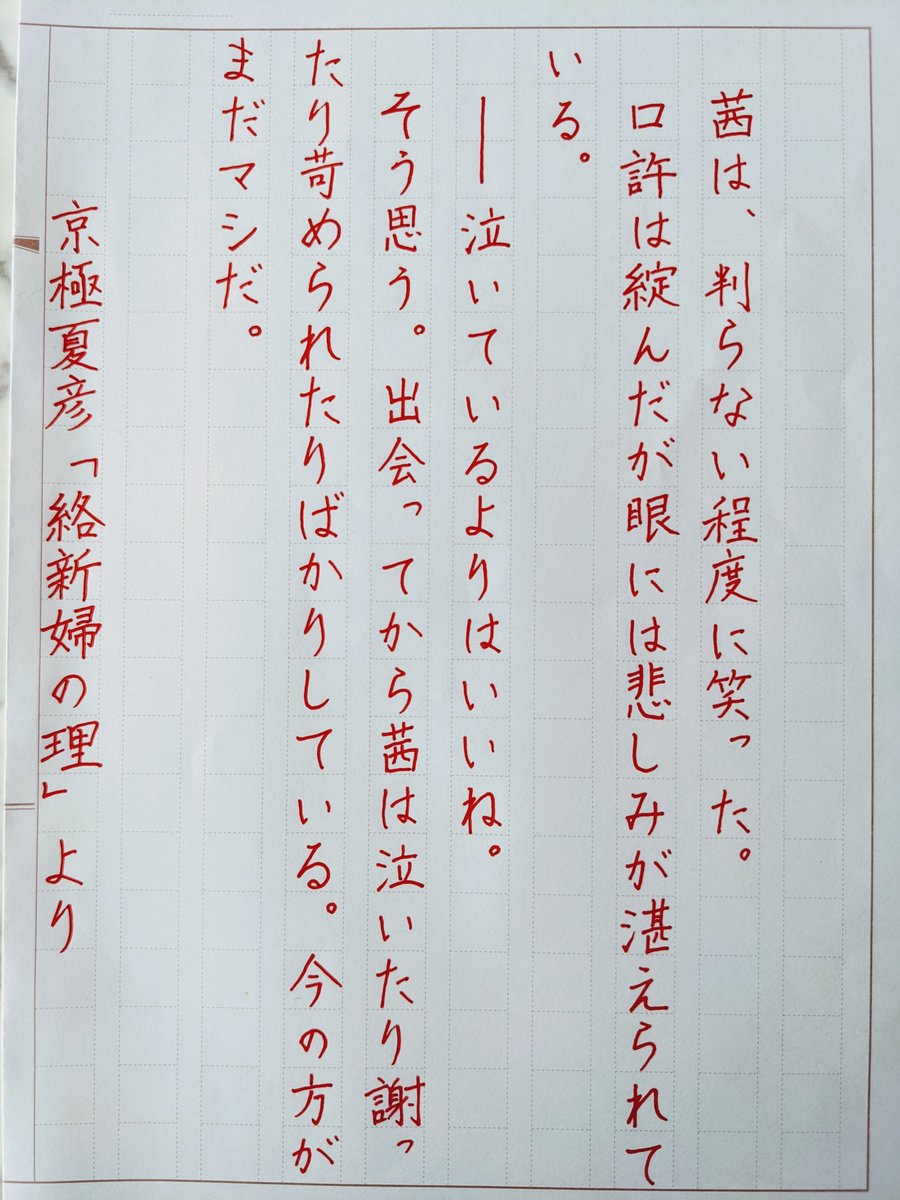 茜は、判らない程度に笑った。
口許は綻んだが眼には悲しみが湛えられて
いる。
――泣いているよりはいいね。
そう思う。出会ってから茜は泣いたり謝っ
たり苛められたりばかりしている。今の方が
まだマシだ。
京極夏彦「絡新婦の理」より